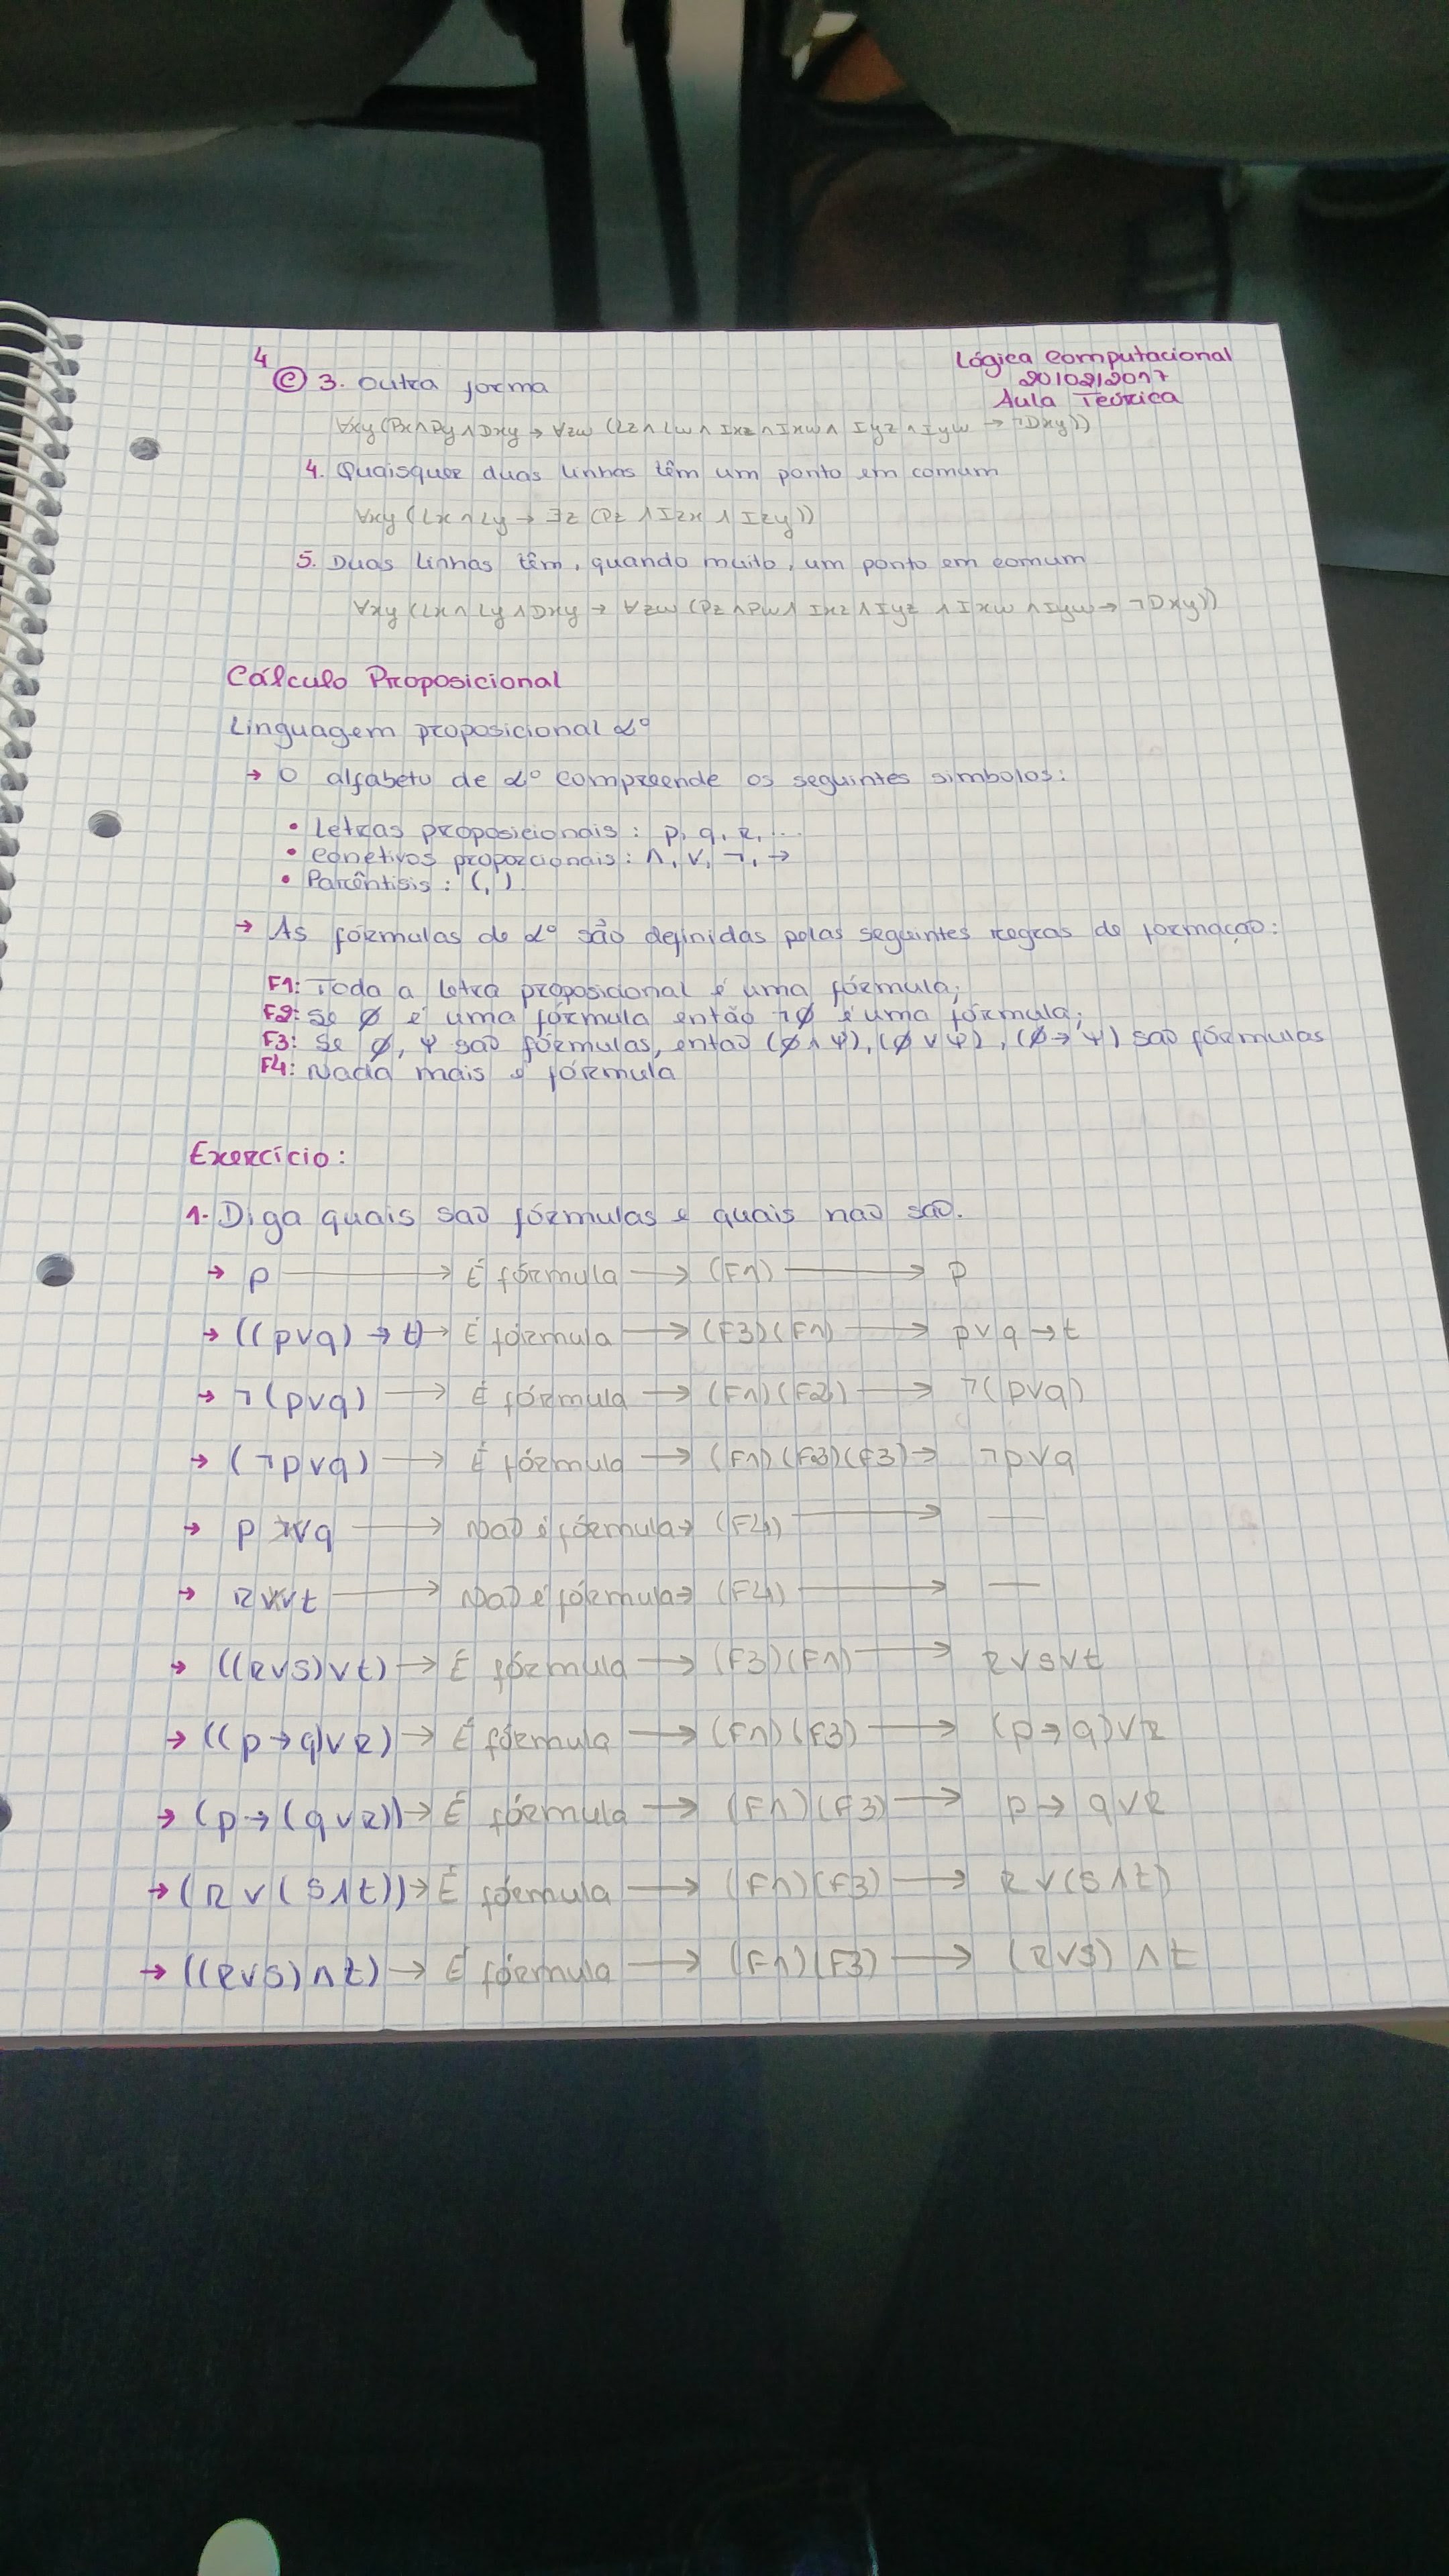 4
© 3. Outra forma
Lógica Computacional
20/02/2017
Aula Teórica
∀xy(Px∧Py∧Dxy → ∀zw (Lz∧Lw∧Ixz∧Ixw∧ Iyz∧Iyw → ¬Dxy))
4. Quaisquer duas linhas têm um ponto em comum
∀xy (Lx∧Ly → ∃z (Pz ∧Izx ∧ Izy))
5. Duas linhas têm, quando muito, um ponto em comum
∀xy (Lx∧Ly∧Dxy → ∀zw (Pz∧Pw∧ Ixz∧Iyz ∧Ixw ∧Iyw → ¬Dxy))
Cálculo Proposicional
Linguagem proposicional ℒ⁰
→ O alfabeto de ℒ⁰ compreende os seguintes simbolos:
• Letras proposicionais : p, q, r, ...
• Conetivos proporcionais : ∧, ∨, ¬, →
• Parêntisis : (, )
→ As fórmulas de ℒ⁰ são definidas pelas seguintes regras de formação:
F1: Toda a letra proposicional é uma fórmula;
F2: Se ø é uma fórmula então ¬ø é uma fórmula;
F3: Se ø, ψ são fórmulas, então (ø ∧ ψ), (ø ∨ ψ), (ø → ψ) são fórmulas
F4: Nada mais é fórmula
Exercício:
1- Diga quais são fórmulas e quais não são.
→ p → É fórmula → (F1) → p
→ ((p∨q) → t) → É fórmula → (F3)(F1) → p∨q → t
→ ¬(p∨q) → É fórmula → (F1)(F2) → ¬(p∨q)
→ (¬p∨q) → É fórmula → (F1)(F3)(F3) → ¬p∨q
→ p ∨q → Não é fórmula → (F4) → —
→ r ∨t → Não é fórmula → (F4) → —
→ ((r∨s)∨t) → É fórmula → (F3)(F1) → r∨s∨t
→ ((p→q)∨r) → É fórmula → (F1)(F3) → (p→q)∨r
→ (p→(q∨r)) → É fórmula → (F1)(F3) → p→ q∨r
→ (r∨(s∧t)) → É fórmula → (F1)(F3) → r∨(s∧t)
→ ((r∨s)∧t) → É fórmula → (F1)(F3) → (r∨s) ∧t